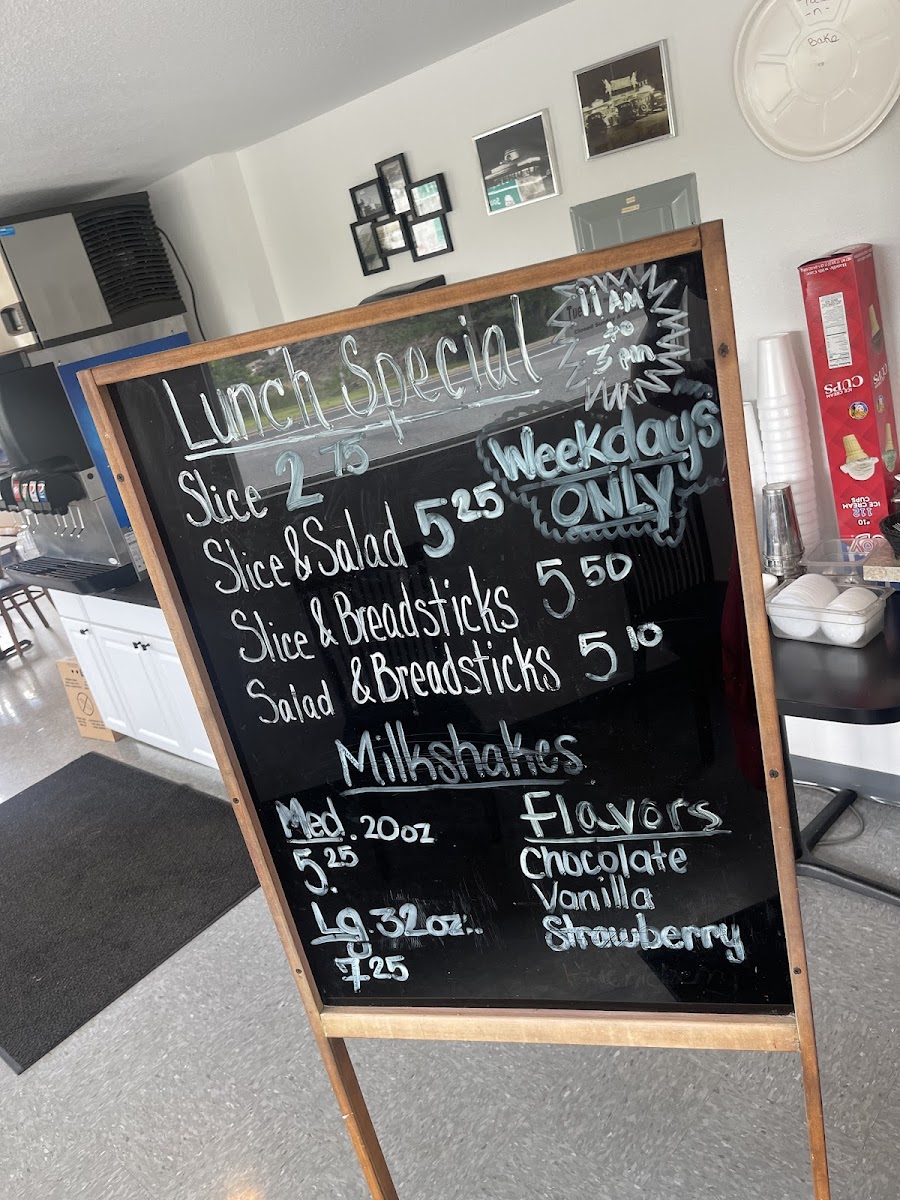 Lunch Special
11 AM
to
3 pm
Weekdays
ONLY
Slice 2 75
Slice & Salad 5 25
Slice & Breadsticks 5 50
Salad & Breadsticks 5 10
Milkshakes
Med. 20oz
5.25
Lg. 32oz.
7 25
Flavors
Chocolate
Vanilla
Strawberry
Bake
ICE CREAM
CUPS